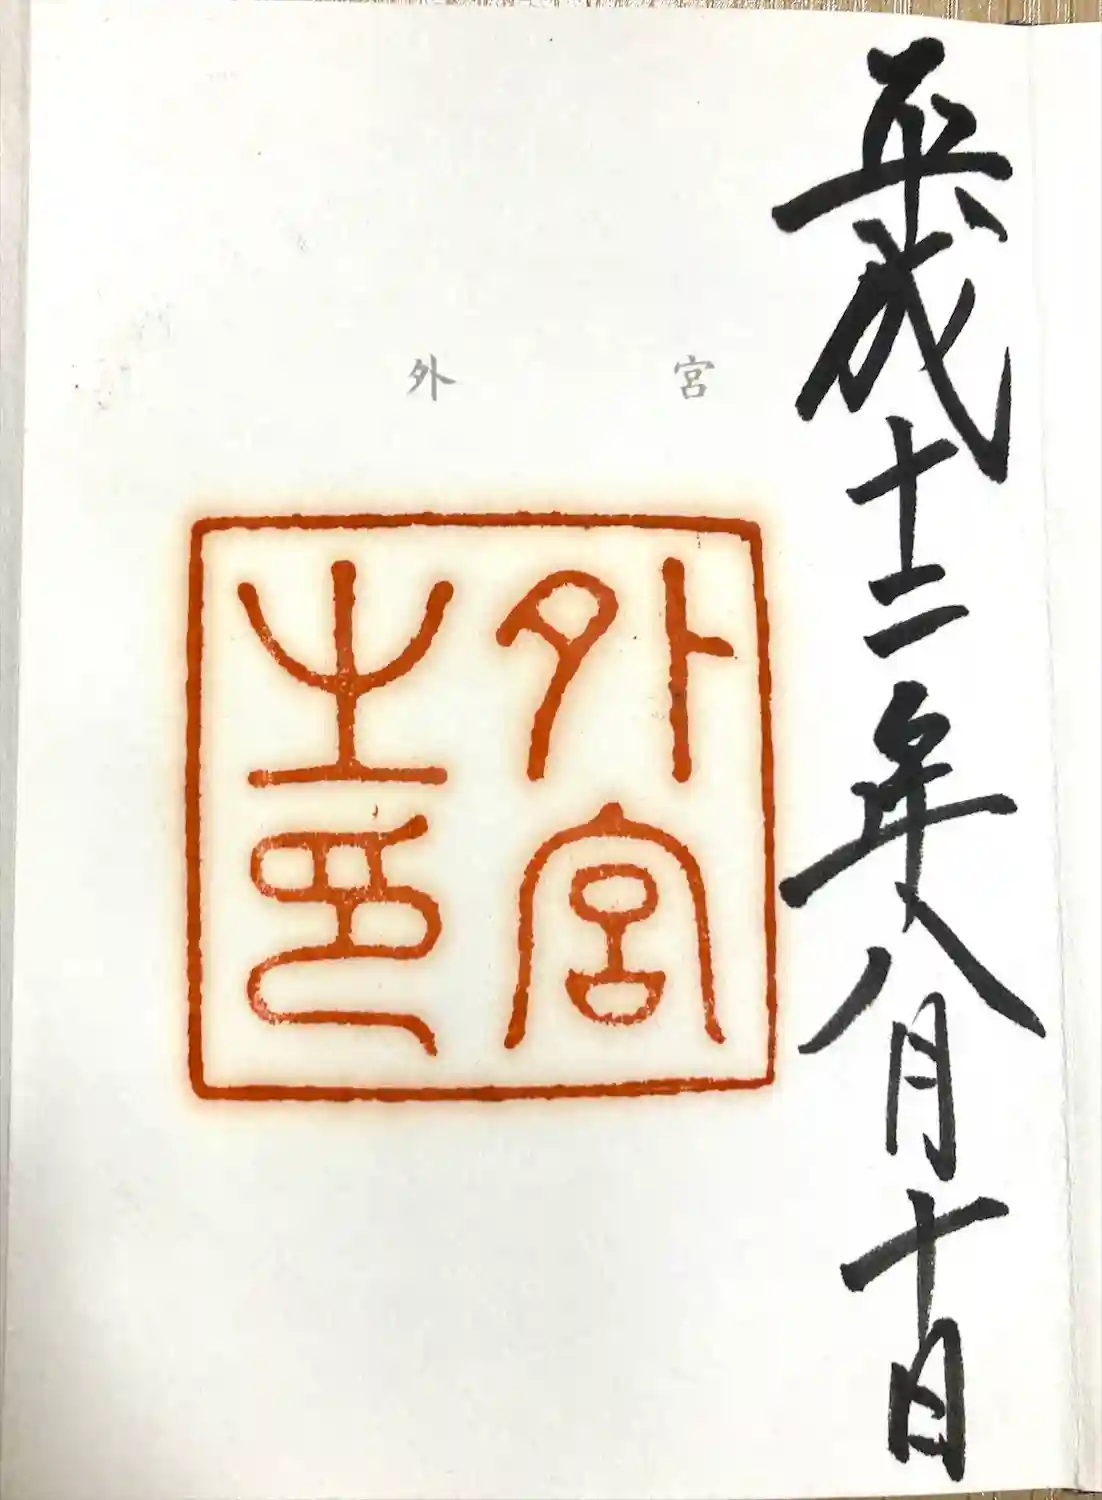 平成十二年八月十日
外 宮
外宮
之印